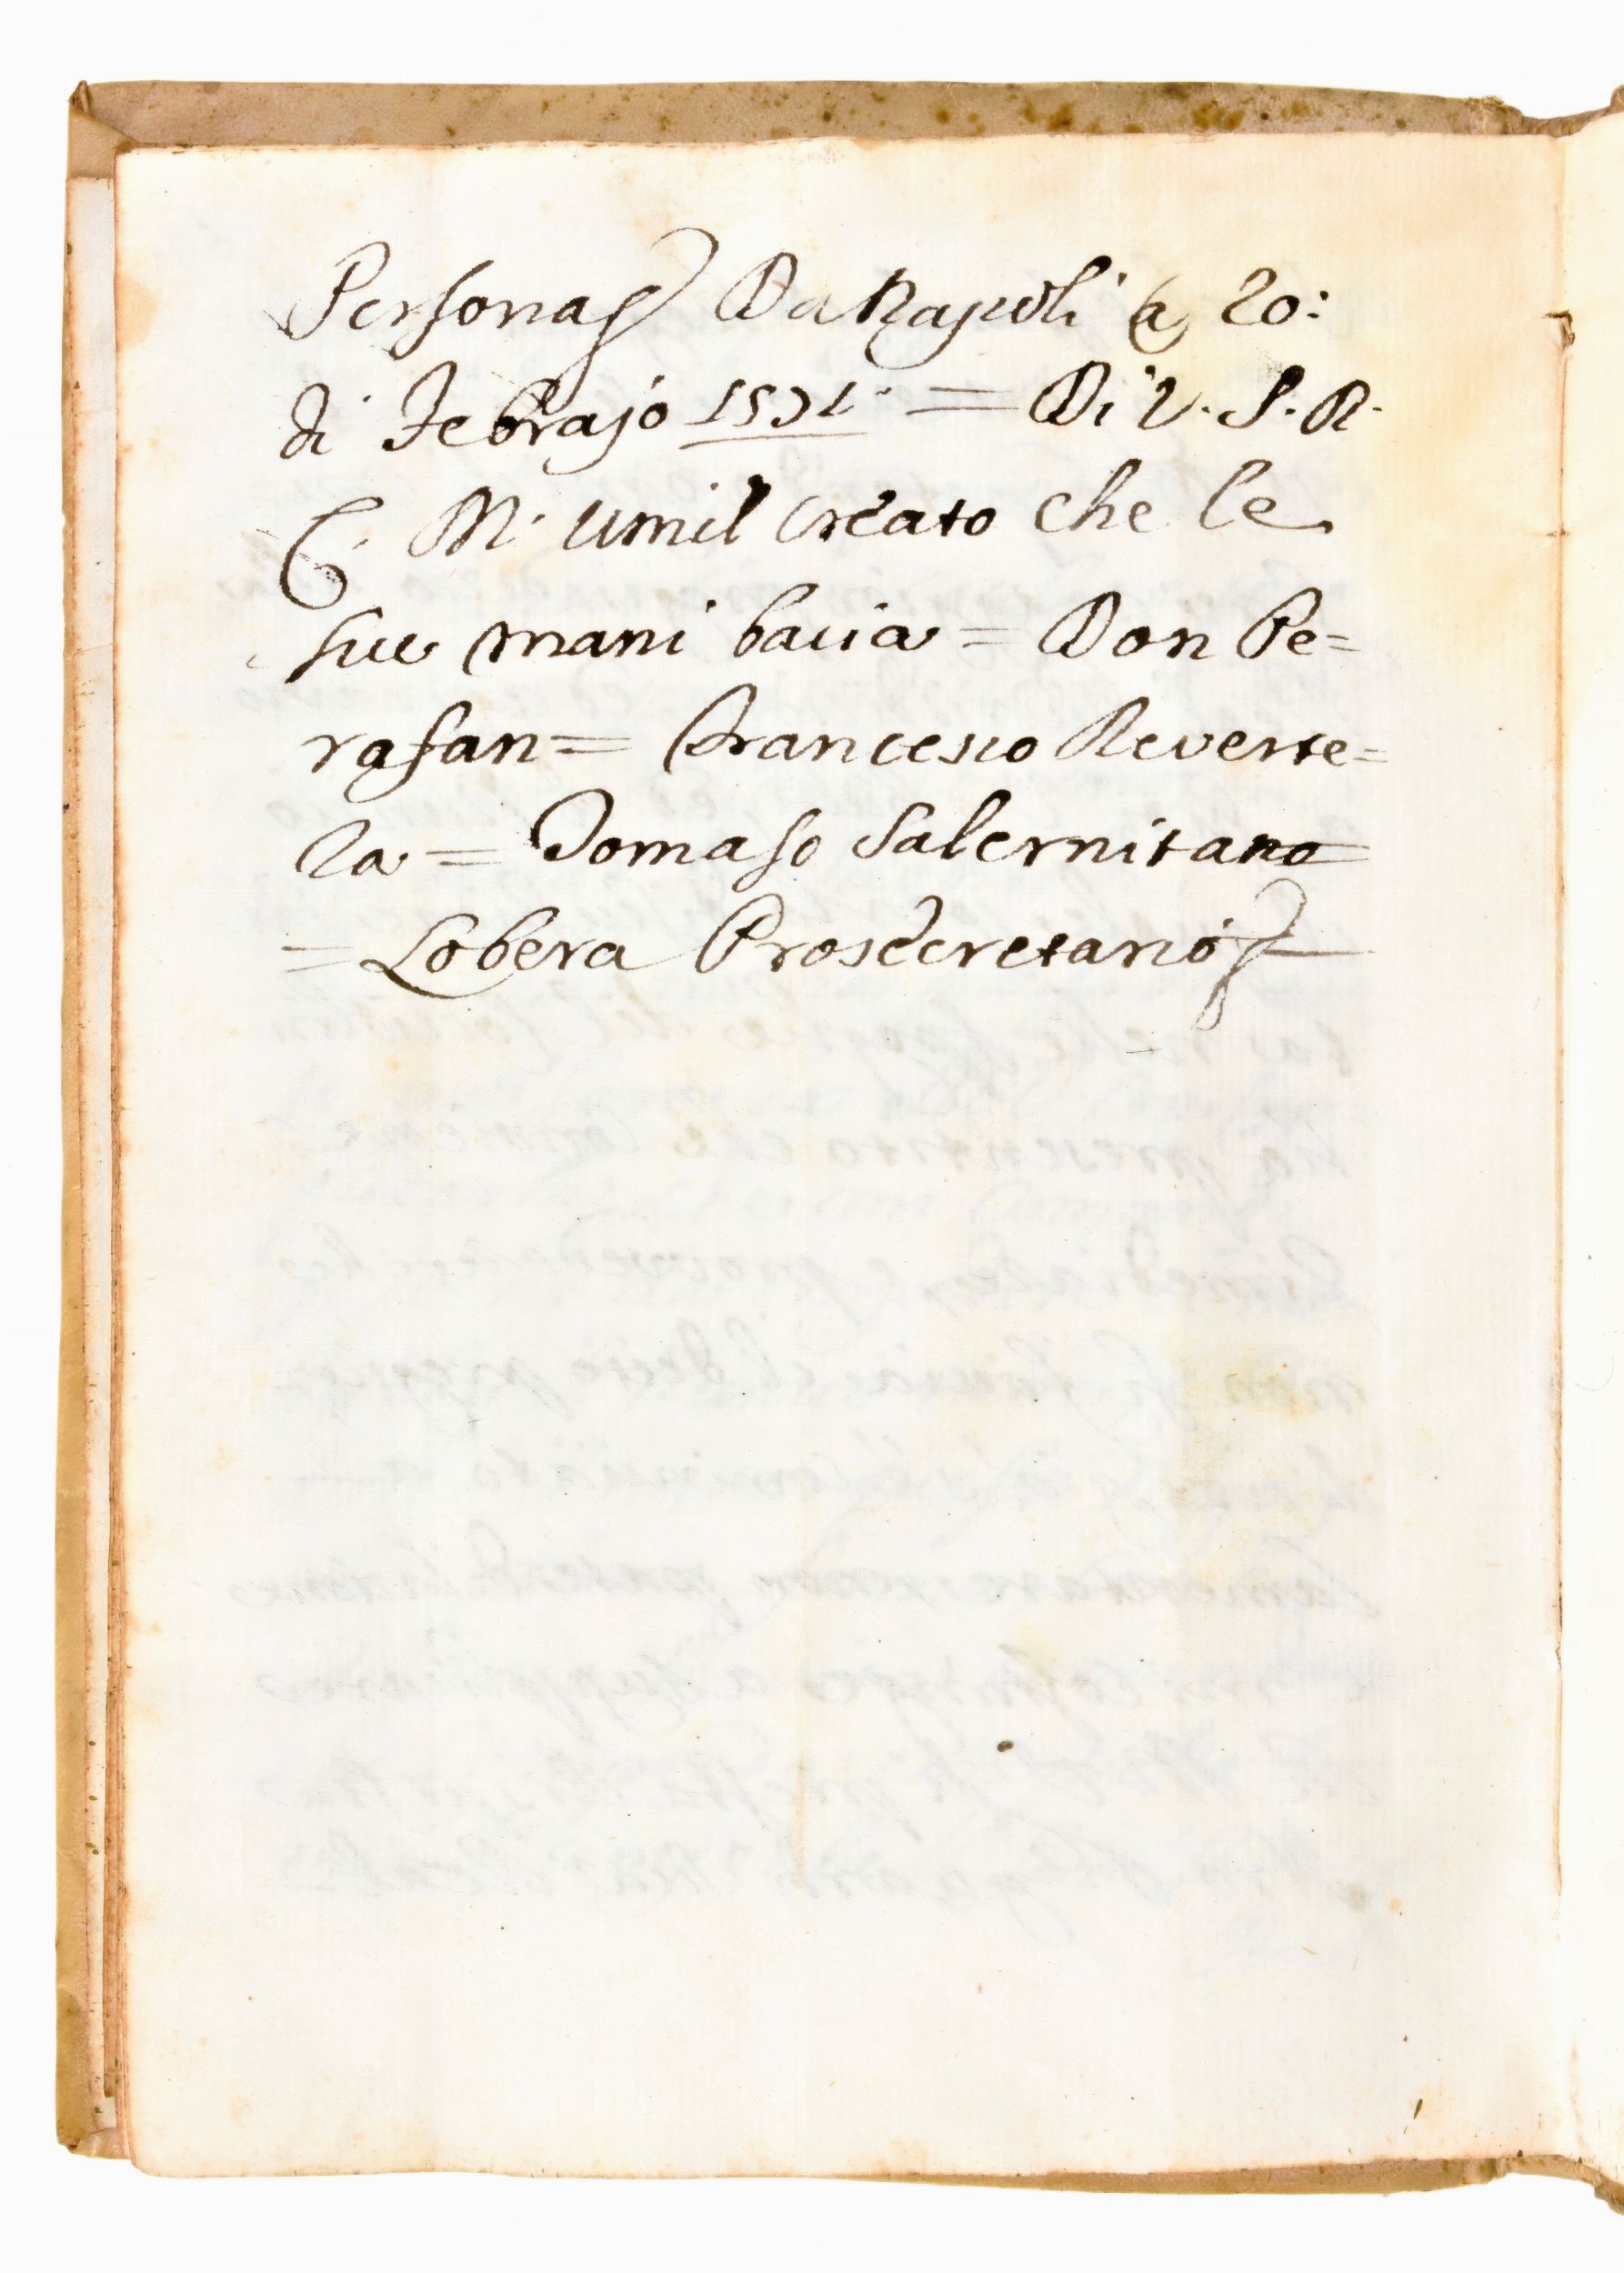 Persona Da Napoli a 20:
di Febrajo 1571. = Di V. S. R.
C. M. umil Creato che le
sue mani bacia = Don Pe=
rafan = Francesco Reverte=
ra = Tomaso Salernitano
= Lobera Prosecretario